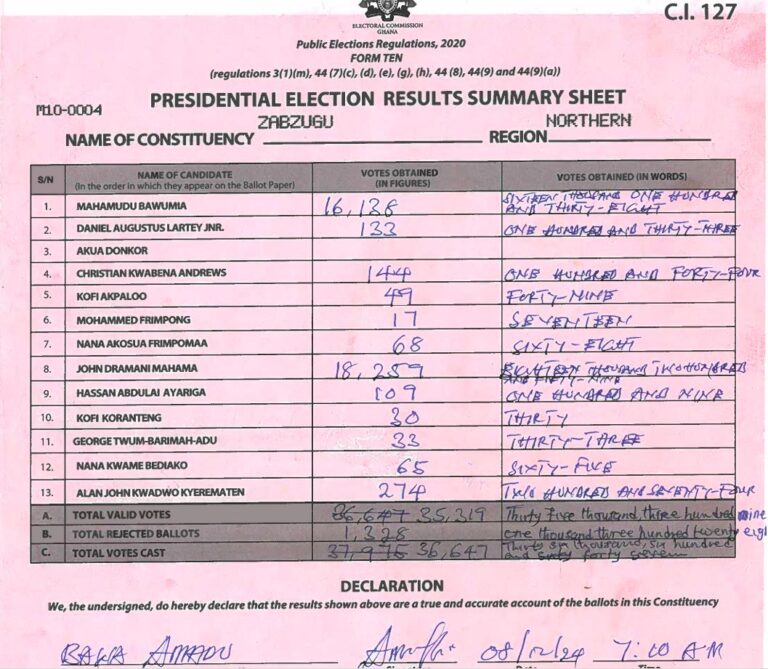 C.I. 127
ELECTORAL COMMISSION
GHANA
Public Elections Regulations, 2020
FORM TEN
(regulations 3(1)(m), 44 (7)(c), (d), (e), (g), (h), 44 (8), 44(9) and 44(9)(a))
M10-0004
PRESIDENTIAL ELECTION RESULTS SUMMARY SHEET
NAME OF CONSTITUENCY ZABZUGU REGION NORTHERN
S/N NAME OF CANDIDATE (In the order in which they appear on the Ballot Paper) VOTES OBTAINED (IN FIGURES) VOTES OBTAINED (IN WORDS)
1. MAHAMUDU BAWUMIA 16,138 SIXTEEN THOUSAND ONE HUNDRED AND THIRTY-EIGHT
2. DANIEL AUGUSTUS LARTEY JNR. 133 ONE HUNDRED AND THIRTY-THREE
3. AKUA DONKOR
4. CHRISTIAN KWABENA ANDREWS 144 ONE HUNDRED AND FORTY-FOUR
5. KOFI AKPALOO 49 FORTY-NINE
6. MOHAMMED FRIMPONG 17 SEVENTEEN
7. NANA AKOSUA FRIMPOMAA 68 SIXTY-EIGHT
8. JOHN DRAMANI MAHAMA 18,259 EIGHTEEN THOUSAND TWO HUNDRED AND FIFTY-NINE
9. HASSAN ABDULAI AYARIGA 109 ONE HUNDRED AND NINE
10. KOFI KORANTENG 30 THIRTY
11. GEORGE TWUM-BARIMAH-ADU 33 THIRTY-THREE
12. NANA KWAME BEDIAKO 65 SIXTY-FIVE
13. ALAN JOHN KWADWO KYEREMATEN 274 TWO HUNDRED AND SEVENTY-FOUR
A. TOTAL VALID VOTES 36,647 35,319 Thirty five thousand, three hundred nine
B. TOTAL REJECTED BALLOTS 1,328 one thousand three hundred twenty eigh
C. TOTAL VOTES CAST 37,975 36,647 Thirty six thousand, six hundred and sixty forty seven
DECLARATION
We, the undersigned, do hereby declare that the results shown above are a true and accurate account of the ballots in this Constituency
BAWA AMADU 08/12/24 7:10 AM